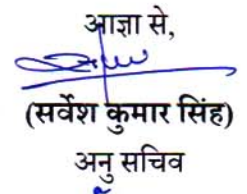 आज्ञा से,
(सर्वेश कुमार सिंह)
अनु सचिव